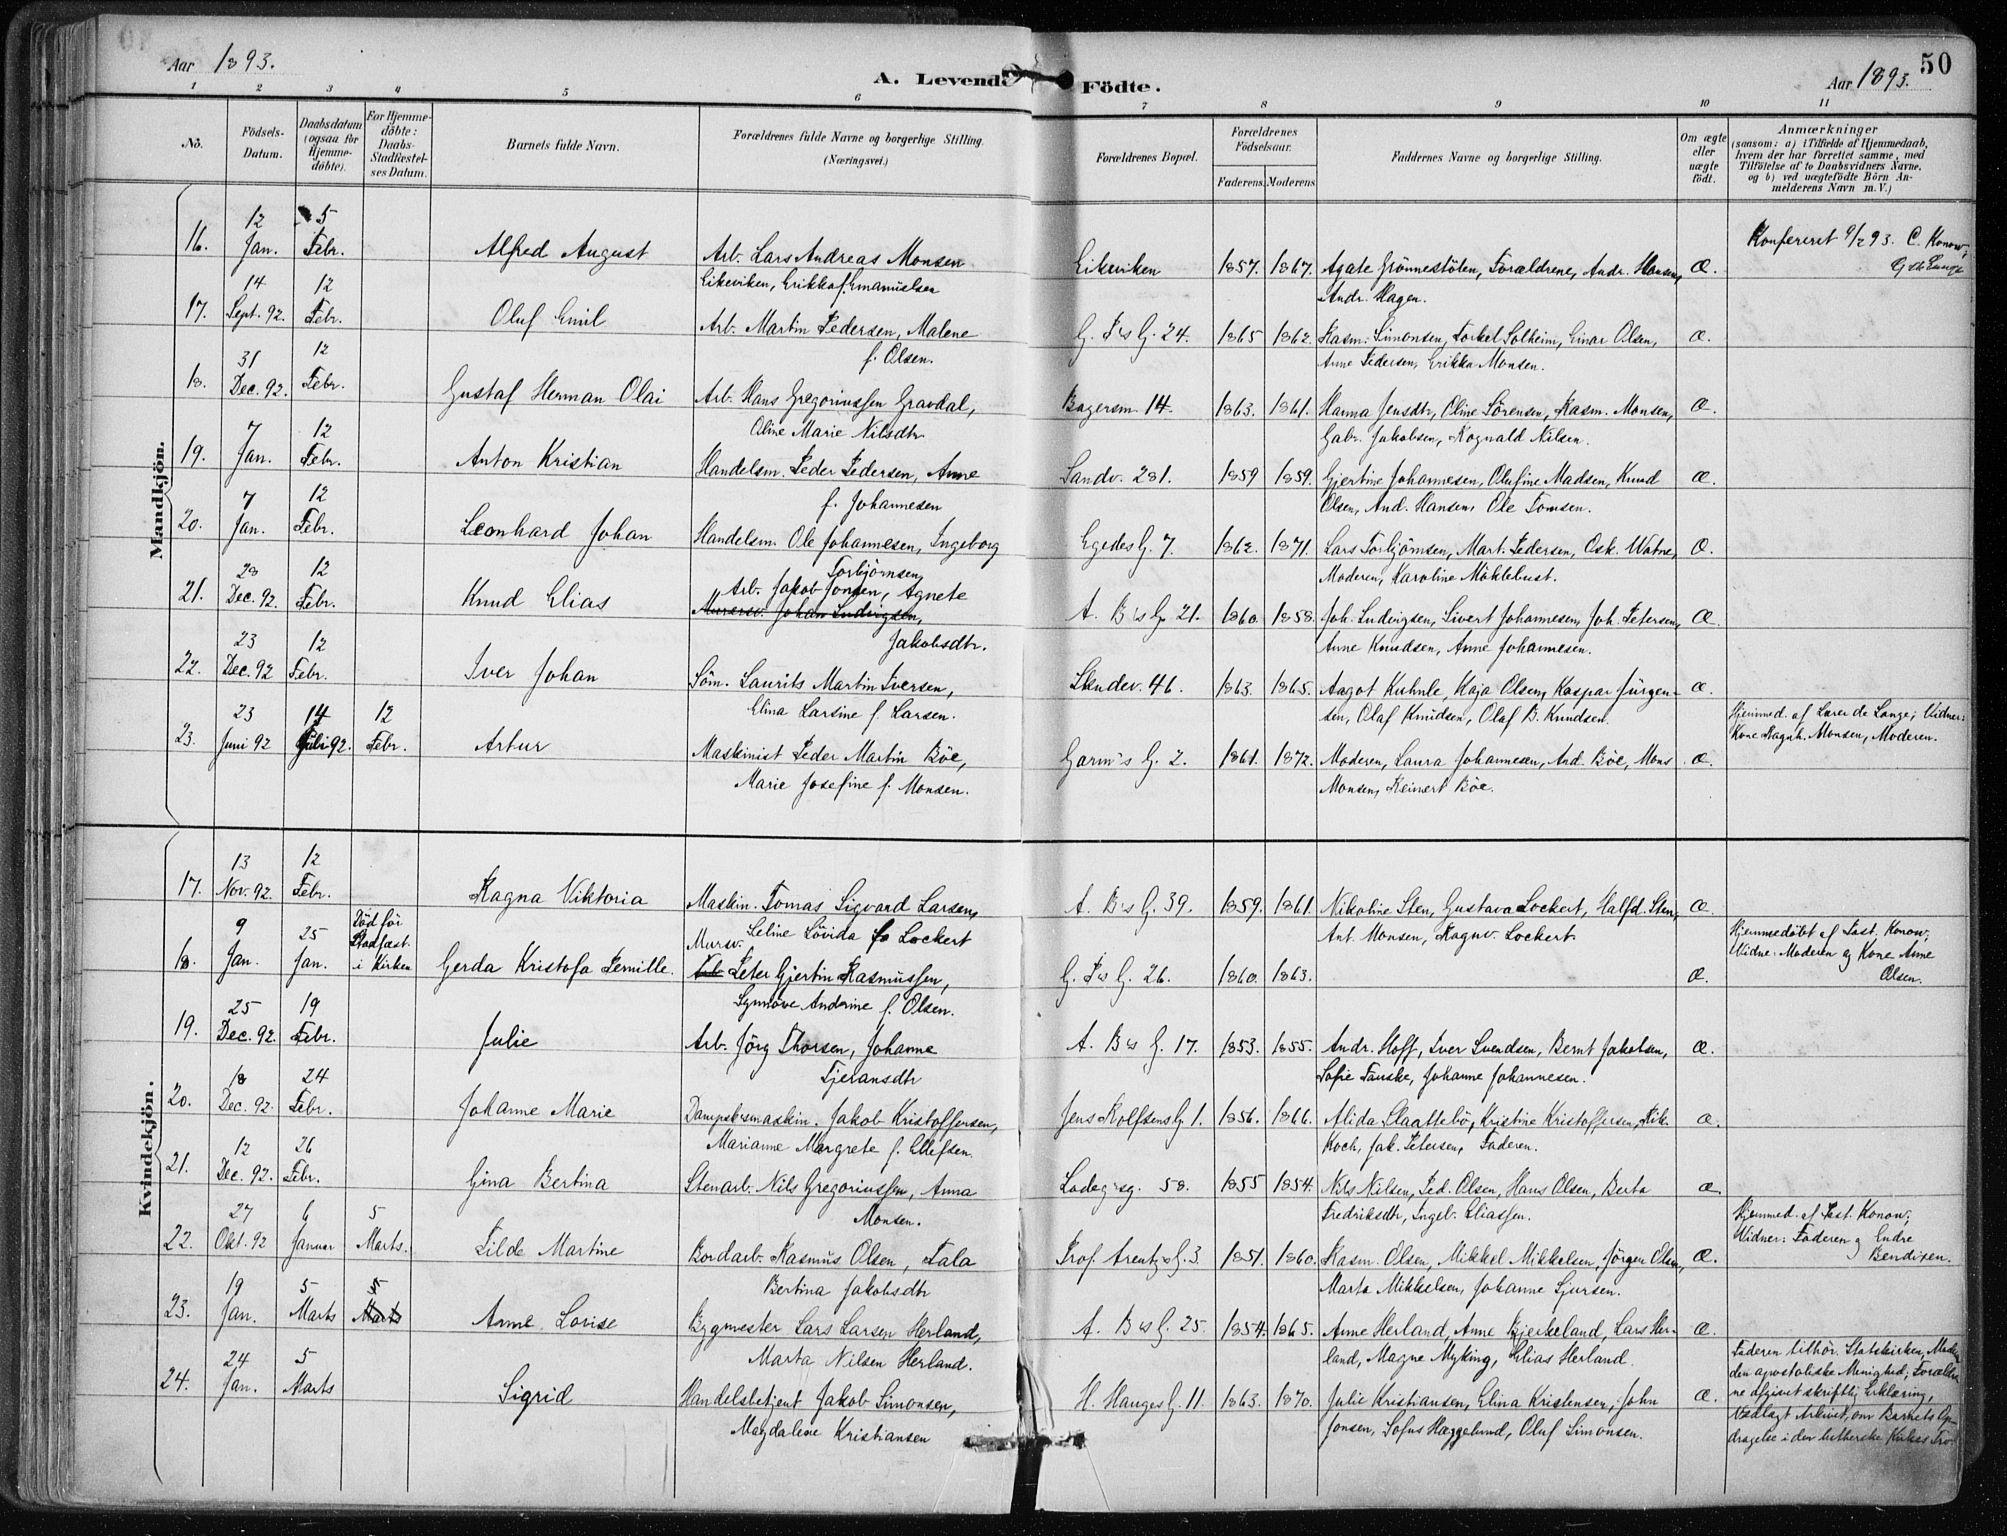 Aar 1893.
A. Levende Födte.
Aar 1893.
50
1 2 3 4 5 6 7 8 9 10 11
No.
Födsels-Datum.
Daabsdatum (ogsaa for Hjemmedöbte).
For Hjemmedöbte: Daabs-Stadfæstelses Datum.
Barnets fulde Navn.
Forældrenes fulde Navne og borgerlige Stilling. (Næringsvei.)
Forældrenes Bopæl.
Forældrenes Födselsaar.
Faderens. Moderens.
Faddernes Navne og borgerlige Stilling.
Om ægte eller uægte födt.
Anmærkninger
(saasom: a) i Tilfælde af Hjemmedaab, hvem der har forrettet samme, med Tilföielse af to Daabsvidners Navne, og b) ved uægtefödte Börn Anmelderens Navn m. V.)
Mandkjön.
16. 12 Jan. 5 Febr. Alfred August Arb. Lars Andreas Monsen Eikeviken 1857. 1867. Agate Grönnestöten, Forældrene, Andr. Hansen, Æ. Konfereret 9/2 93. C. Konow,
Eikeviken, Erikka f. Emanuelsen Andr. Hagen.
17. 14 Sept. 92. 12 Febr. Oluf Emil Arb. Martin Pedersen, Malene G. P's G. 24. 1865 1862. Rasm. Simonsen, Torkel Solheim, Einar Olsen, Æ.
f. Olsen. Anne Pedersen, Erikka Monsen.
18. 31 Dec. 92. 12 Febr. Gustaf Herman Olai Arb. Hans Gregoriussen Gravdal, Bagersm. 14. 1863. 1861. Hanna Jensdtr, Oline Sörensen, Rasm. Monsen, Æ.
Oline Marie Nilsdtr. Gabr. Jakobsen, Rognald Nilsen.
19. 7 Jan. 12 Febr. Anton Kristian Handelsm. Peder Pedersen, Anne Sandv. 281. 1859 1859. Gjertine Johannesen, Olufine Madsen, Knud Æ.
f. Johannesen Olsen, And. Hansen, Ole Tomsen.
20. 7 Jan. 12 Febr. Leonhard Johan Handelsm. Ole Johannesen, Ingeborg Egedes G. 7. 1862. 1871. Lars Torbjörnsen, Mart. Pedersen, Osk. Watne, Æ.
Torbjörnsen, Moderen, Karoline Möklebust.
21. 28 Dec. 92. 12 Febr. Knud Elias Arb. Jakob Jonsen, Agnete A. B's G. 21. 1860. 1858. Joh. Ludvigsen, Sivert Johannesen, Joh. Petersen, Æ.
Murersv. Johan Ludvigsen,
Jakobsdtr. Anne Knudsen, Anne Johannesen.
22. 23 Dec. 92 12 Febr. Iver Johan Söm. Laurits Martin Iversen, Skudev. 46. 1863. 1865. Aagot Kuhnle, Kaja Olsen, Kaspar Jürgen- Æ.
Elina Larsine f. Larsen. sen, Olaf Knudsen, Olaf B. Knudsen.
23. 23 Juni 92 14 Juli 92. 12 Febr. Artur Maskinist Peder Martin Böe, Garm's G. 2. 1861. 1872. Moderen, Laura Johannesen, And. Böe, Mons Æ. Hjemmed. af Lærer de Lange; Vidner:
Marie Josefine f. Monsen. Monsen, Reinert Böe. Kone Ragnh. Monsen, Moderen.
Kvindekjön.
17. 13 Nov. 92. 12 Febr. Ragna Viktoria Maskin. Tomas Sigvard Larsen, A. B's G. 39. 1859. 1861. Nikoline Sten, Gustava Lockert, Halfd. Sten, Æ.
Seline Lovida f. Lockert Ant. Monsen, Ragnv. Lockert.
18. 9 Jan. 25 Jan. Död för Stadfæst. i Kirken Gerda Kristofa Pernille. Mursv. Peter Gjertin Rasmussen, G. P's G. 26. 1860. 1863. Æ. Hjemmedöbt af Past. Konow;
Synnöve Andrine f. Olsen. Vidne: Moderen og Kone Anne Olsen.
19. 25 Dec. 92. 19 Febr. Julie Arb. Jörg Thorsen, Johanne A. B's G. 17. 1853. 1855. Andr. Hoff, Iver Svendsen, Bernt Jakobsen, Æ.
Tjeransdtr Sofie Fauske, Johanne Johannesen.
20. 18 Dec. 92. 24 Febr. Johanne Marie Dampskibsmaskin. Jakob Kristoffersen, Jens Rolfsens G. 1. 1856. 1866. Alida Slaattebö, Kristine Kristoffersen, Rik. Æ.
Marianne Margrete f. Ellefsen. Koch, Jak. Petersen, Faderen.
21. 12 Dec. 92. 26 Febr. Gina Bertina Stenarb. Nils Gregoriussen, Anna Ladeg.sg. 58. 1855 1854. Nils Nilsen, Ped. Olsen, Hans Olsen, Berta Æ.
Monsen. Fredriksdtr, Ingeb. Eliassen.
22. 27 Okt. 92 6 Januar 5 Marts. Tilde Martine Bordarb. Rasmus Olsen, Tala Prof. Arentz's G. 3. 1851. 1860. Rasm. Olsen, Mikkel Mikkelsen, Jörgen Olsen, Æ. Hjemmed. af Past. Konow;
Bertina Jakobsdtr Marta Mikkelsen, Johanne Sjursen. Vidner: Faderen og Endre Bendixen.
23. 19 Jan. 5 Marts 5 Marts Anne Lovise Bygmester Lars Larsen Herland, A. B's G. 25. 1854. 1865. Anne Herland, Anne Bjerkeland, Lars Her- Æ.
Marta Nilsen Herland. land, Magne Myking, Elias Herland.
24. 24 Jan. 5 Marts Sigrid Handelsbetjent Jakob Simonsen, H. Hauges G. 11. 1863. 1870. Julie Kristiansen, Elina Kristensen, John Æ. Faderen tilhör. Statskirken, Moderen
Magdalene Kristiansen Jonsen, Sofus Haggelund, Oluf Simonsen. den apostoliske Menighed; Forældre-
ne afgivet skriftlig Erklæring,
Vedlagt Arkivet, om Barnets Op-
dragelse i den lutherske Kirkes Tro